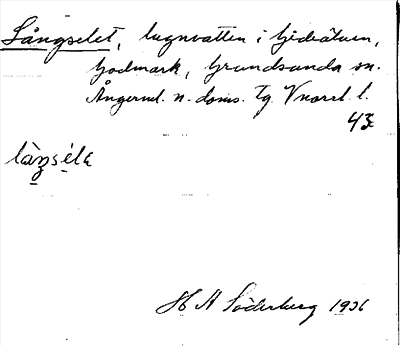 Långselet, lugnvatten i Gideälven,
Godmark, Grundsunda sn.
Ångerml. n. doms. tg. Vnorrl. l.
43
làŋséla
H A Söderberg 1936